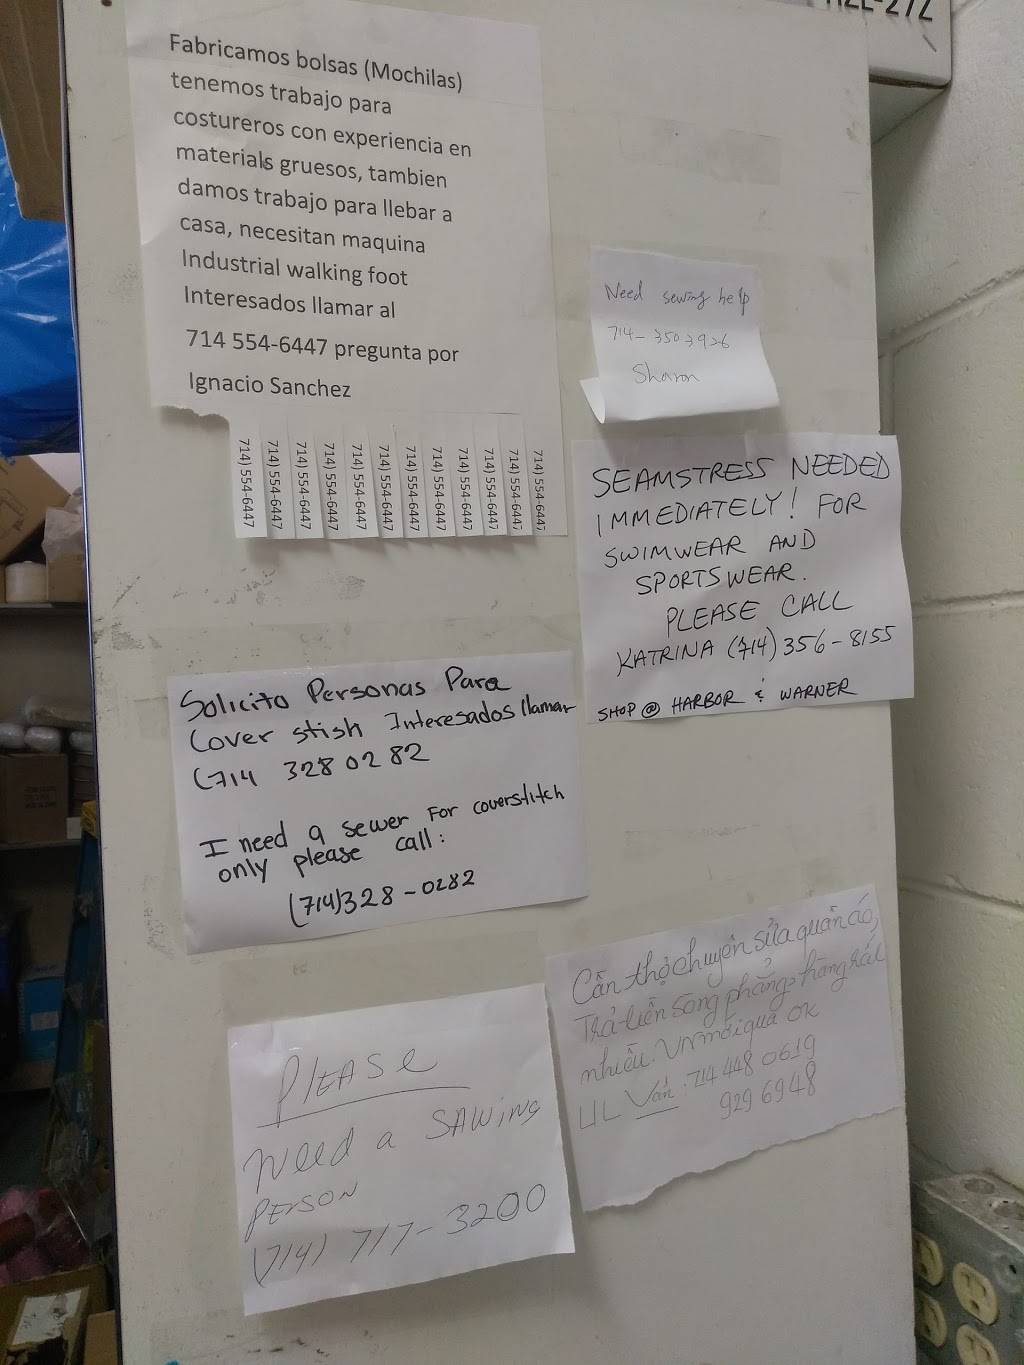 Fabricamos bolsas (Mochilas)
tenemos trabajo para
costureros con experiencia en
materials gruesos, tambien
damos trabajo para llebar a
casa, necesitan maquina
Industrial walking foot
Interesados llamar al
714 554-6447 pregunta por
Ignacio Sanchez
714) 554-6447
714) 554-6447
714) 554-6447
714) 554-6447
714) 554-6447
714) 554-6447
714) 554-6447
714) 554-6447
714) 554-6447
714) 554-6447
714) 554-6447
714) 554-6447
Need sewing help
714-3503926
Sharon
SEAMSTRESS NEEDED
IMMEDIATELY! FOR
SWIMWEAR AND
SPORTSWEAR.
PLEASE CALL
KATRINA (714) 356-8155
SHOP @ HARBOR & WARNER
Solicito Personas Para
Cover stish Interesados llamar
(714 328 0282
I need a sewer For coverstitch
only please call:
(714)328-0282
Cần thợ chuyên sửa quần áo,
Trả tiền sòng phẳng, hàng rất
nhiều. VN mới qua OK
LIL Vân: 714 448 0619
929 6948
PLEASE
NEED a SAWING
PERSON
(714) 717-3200